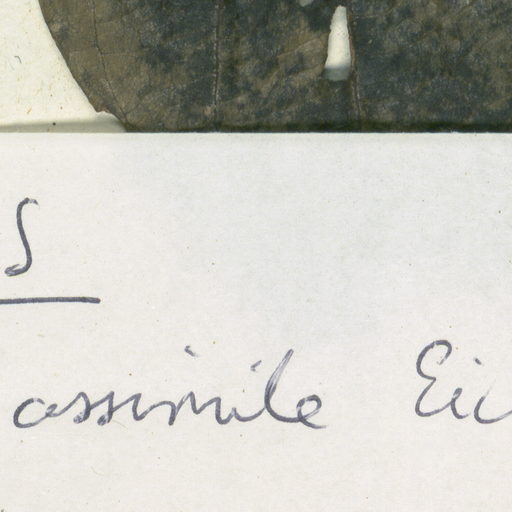 S
assimile Eic